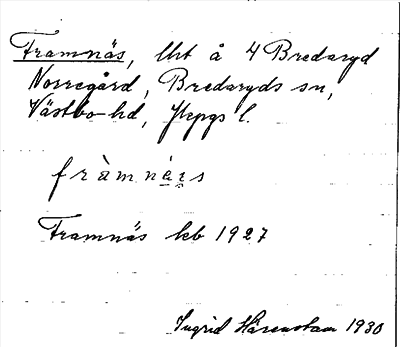 Framnäs, lht å 4 Bredaryd
Norregård, Bredaryds sn,
Västbo hd, Jkpgs l.
fràmnä̀s
Framnäs kb 1927
Ingrid Härenstam 1930